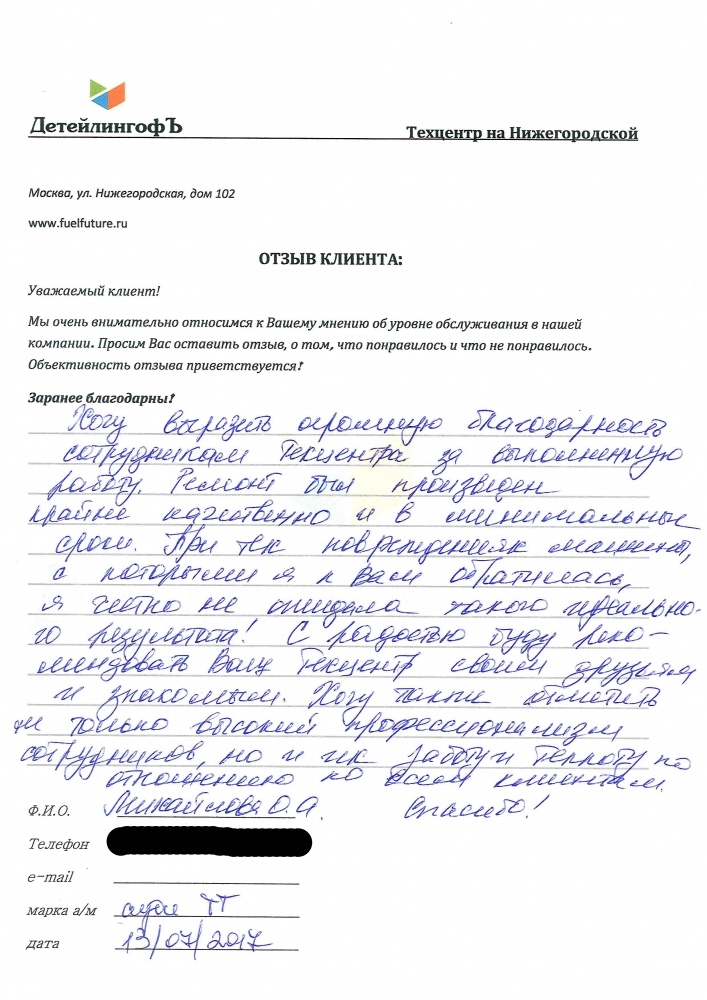 ДетейлингофЪ
Техцентр на Нижегородской
Москва, ул. Нижегородская, дом 102
www.fuelfuture.ru
ОТЗЫВ КЛИЕНТА:
Уважаемый клиент!
Мы очень внимательно относимся к Вашему мнению об уровне обслуживания в нашей
компании. Просим Вас оставить отзыв, о том, что понравилось и что не понравилось.
Объективность отзыва приветствуется!
Заранее благодарны!
Хочу выразить огромную благодарность
сотрудникам Техцентра за выполненную
работу. Ремонт был произведен
крайне качественно и в минимальные
сроки. При тех повреждениях машины,
с которыми я к Вам обратилась,
я честно не ожидала такого идеально-
го результата! С радостью буду реко-
мендовать Ваш Техцентр своим друзьям
и знакомым. Хочу также отметить
не только высокий профессионализм
сотрудников, но и их заботу и теплоту по
отношению ко всем клиентам.
Ф.И.О. Михайлова О.А. Спасибо!
Телефон
e-mail
марка а/м ауди ТТ
дата 13/07/2017